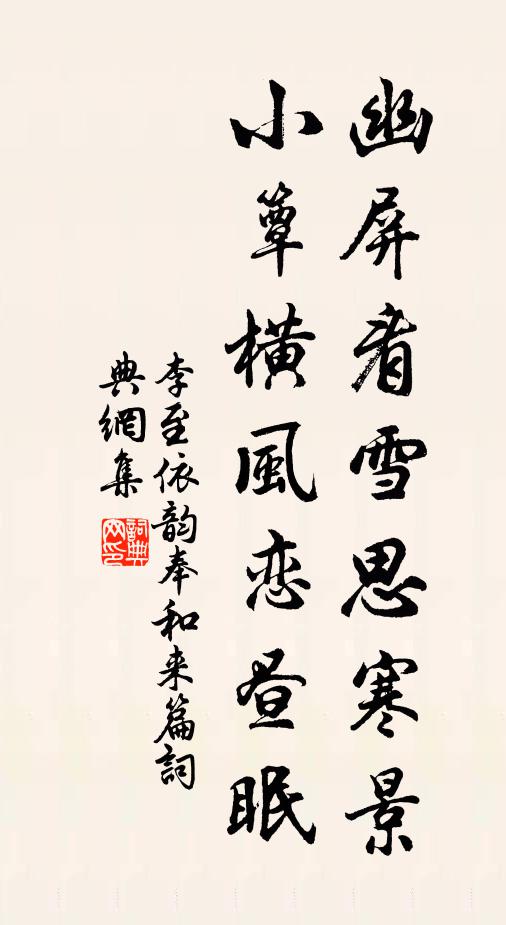 幽屏看雪思寒景
小簟横風恋昼眠
李至依韵奉和来篇詞
典網集
詞典網印